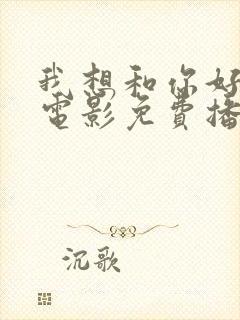 我想和你好
电影免費播
沉歌